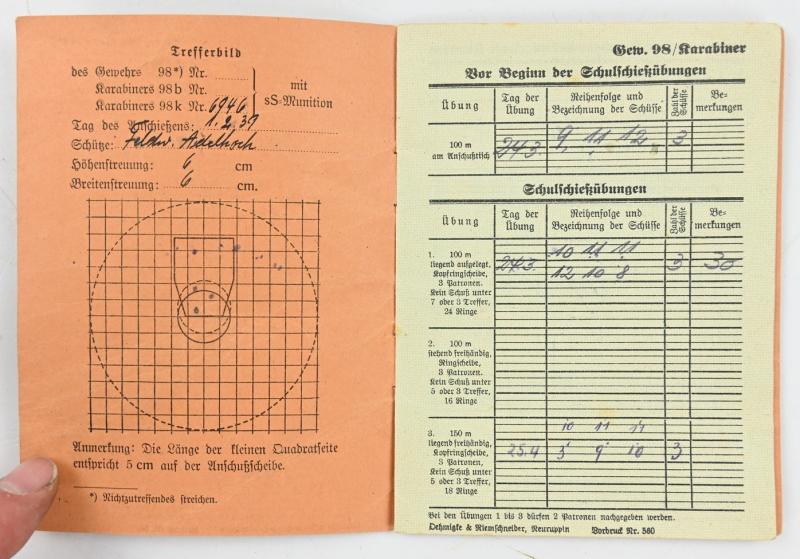 Trefferbild
des Gewehrs 98*) Nr.
Karabiners 98 b Nr.
Karabiners 98 k Nr. 6946
mit
sS-Munition
Tag des Anschießens: 1. 2. 39
Schütze: Feldw. Adelhoch
Höhenstreuung: 6 cm
Breitenstreuung: 6 cm.
Anmerkung: Die Länge der kleinen Quadratseite
entspricht 5 cm auf der Anschußscheibe.
*) Nichtzutreffendes streichen.
Gew. 98/Karabiner
Vor Beginn der Schulschießübungen
Übung
Tag der
Übung
Reihenfolge und
Bezeichnung der Schüsse
Zahl der
Schüsse
Be-
merkungen
100 m
am Anschußtisch
24.3. 9 11 12 3
Schulschießübungen
Übung
Tag der
Übung
Reihenfolge und
Bezeichnung der Schüsse
Zahl der
Schüsse
Be-
merkungen
1. 100 m
liegend aufgelegt,
Kopfringscheibe,
3 Patronen.
Kein Schuß unter
7 oder 3 Treffer,
24 Ringe
10 11 11
24.3. 3 30
12 10 8
2. 100 m
stehend freihändig,
Ringscheibe,
3 Patronen.
Kein Schuß unter
5 oder 3 Treffer,
16 Ringe
3. 150 m
liegend freihändig,
Kopfringscheibe,
3 Patronen,
Kein Schuß unter
5 oder 3 Treffer,
18 Ringe
10 11 11
25.4 9 10 3
Bei den Übungen 1 bis 3 dürfen 2 Patronen nachgegeben werden.
Oehmigke & Riemschneider, Neuruppin Vordruck Nr. 560